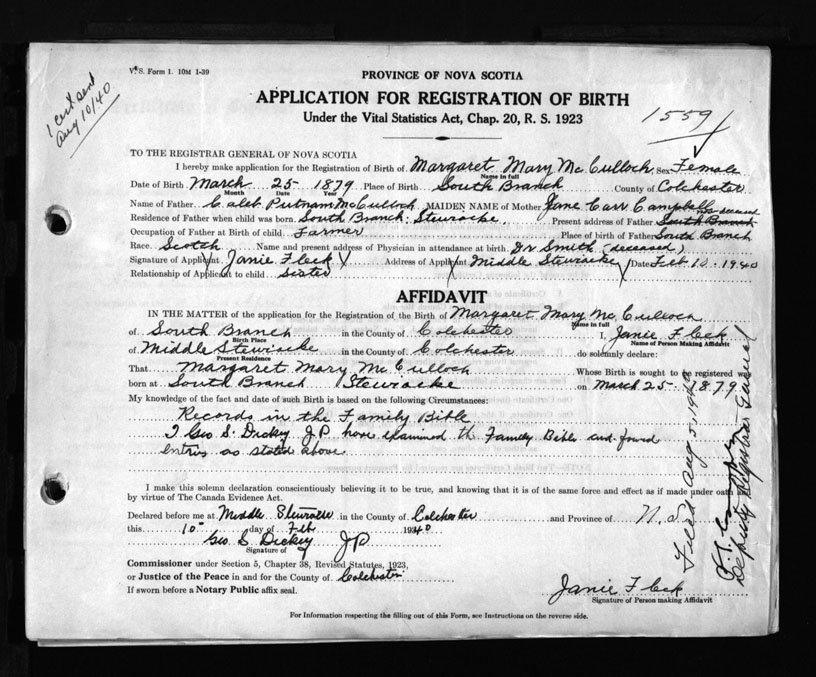 V.S. Form 1. 10M 1-39
1 cert sent
Aug 10/40
PROVINCE OF NOVA SCOTIA
APPLICATION FOR REGISTRATION OF BIRTH
1559
Under the Vital Statistics Act, Chap. 20, R. S. 1923
TO THE REGISTRAR GENERAL OF NOVA SCOTIA
I hereby make application for the Registration of Birth of Margaret Mary McCulloch Sex Female
Name in full
Date of Birth March 25 1879 Place of Birth South Branch County of Colchester
Month Date Year
Name of Father Caleb Putnam McCulloch MAIDEN NAME of Mother Jane Carr Campbell
Residence of Father when child was born South Branch Stewiacke Present address of Father South Branch deceased
Occupation of Father at Birth of child Farmer Place of birth of Father South Branch
Race Scotch Name and present address of Physician in attendance at birth Dr Smith (deceased)
Signature of Applicant Janie Fleck Address of Applicant Middle Stewiacke Date Feb 10 1940
Relationship of Applicant to child Sister
AFFIDAVIT
IN THE MATTER of the application for the Registration of the Birth of Margaret Mary McCulloch
Name in full
of South Branch in the County of Colchester I, Janie Fleck
Birth Place Name of Person Making Affidavit
of Middle Stewiacke in the County of Colchester do solemnly declare:
Present Residence
That Margaret Mary McCulloch Whose Birth is sought to be registered was
born at South Branch Stewiacke on March 25 1879
My knowledge of the fact and date of such Birth is based on the following Circumstances:
Records in the Family Bible
I Geo S. Dickey J P have examined the Family Bible and found
entries as stated above
I make this solemn declaration conscientiously believing it to be true, and knowing that it is of the same force and effect as if made under oath
by virtue of The Canada Evidence Act.
Declared before me at Middle Stewiacke in the County of Colchester and Province of N. S.
this 10 day of Feb 1940
Geo S Dickey J P
Signature of
Commissioner under Section 5, Chapter 38, Revised Statutes, 1923,
or Justice of the Peace in and for the County of Colchester
If sworn before a Notary Public affix seal.
Janie Fleck
Signature of Person making Affidavit
For Information respecting the filling out of this Form, see Instructions on the reverse side.
Filed Aug 5, 1940
Deputy Registrar General